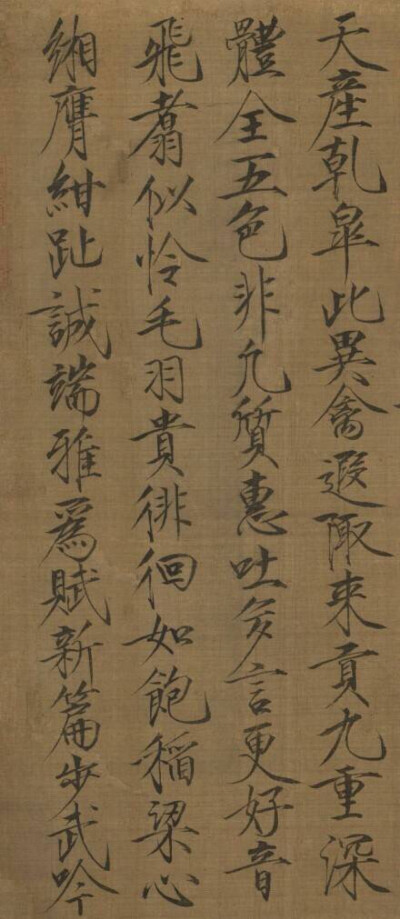 天産乾皐此異禽遐陬来貢九重深
體全五色非凡質惠吐多言更好音
飛翥似怜毛羽貴徘徊如飽稲粱心
緗膺紺趾誠端雅爲賦新篇步武吟